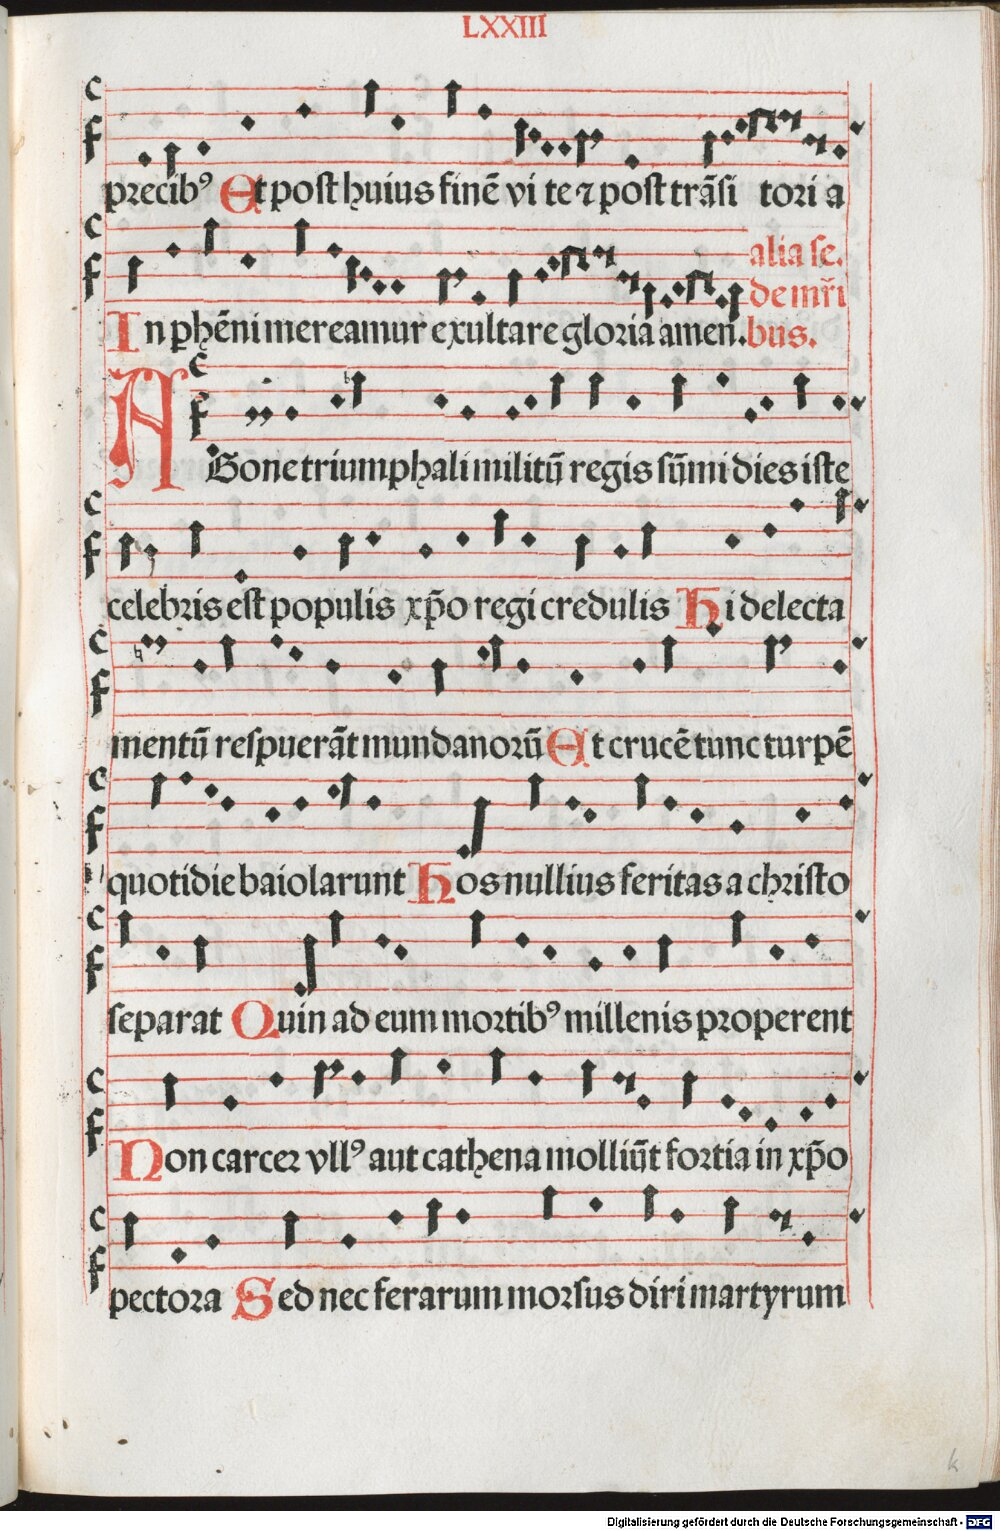 LXXIII
precibꝰ Et post huius finē vi te ⁊ post trāsi tori a
alia se.
de mr̄i
In phēni mereamur exultare gloria amen. bus.
Agone triumphali militū regis sūmi dies iste
celebris est populis xp̄o regi credulis Hi delecta
mentū respuerāt mundanorū Et crucē tunc turpē
quotidie baiolarunt Hos nullius feritas a christo
separat Quin ad eum mortibꝰ millenis properent
Non carcer vllꝰ aut cathena molliūt fortia in xp̄o
pectora Sed nec ferarum morsus diri martyrum
k
Digitalisierung gefördert durch die Deutsche Forschungsgemeinschaft - DFG